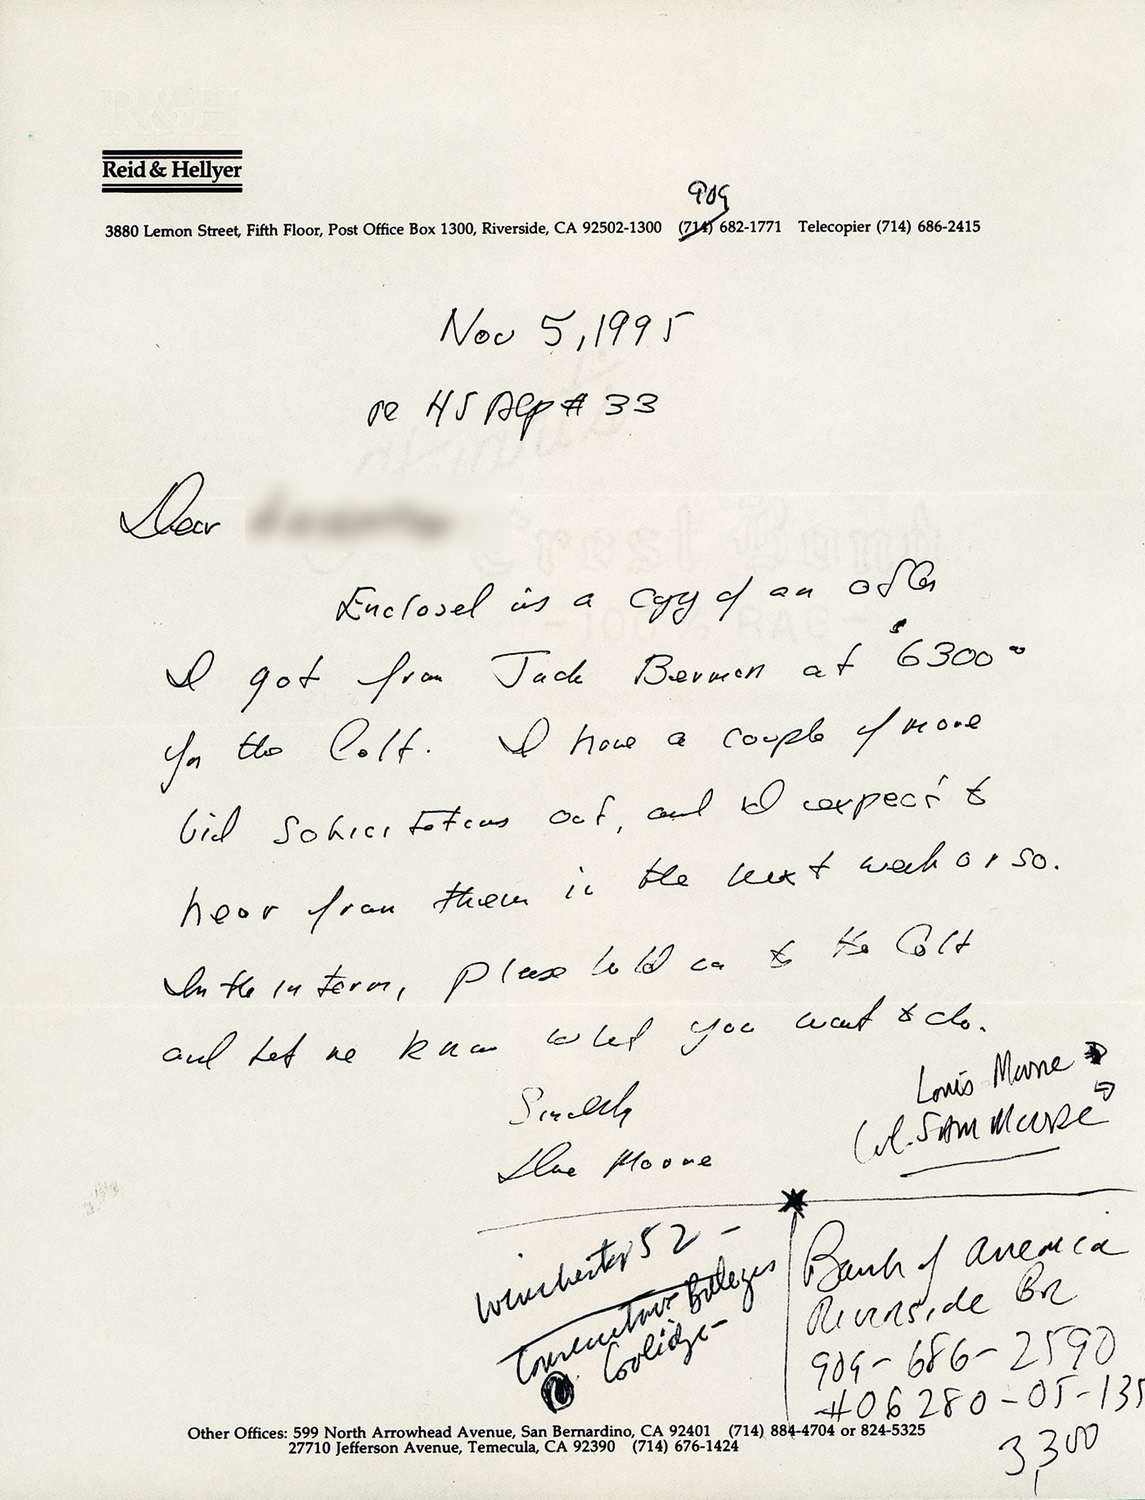 R&H
Reid & Hellyer
909
3880 Lemon Street, Fifth Floor, Post Office Box 1300, Riverside, CA 92502-1300 (714) 682-1771 Telecopier (714) 686-2415
Nov 5, 1995
re 45 Acp # 33
Dear
Enclosed is a copy of an offer
I got from Jack Berman at $6300 00
for the Colt. I have a couple of more
bid solicitations out, and I expect to
hear from them in the next week or so.
In the interim, please hold on to the Colt
and let me know what you want to do.
Sincerely
Dave Moore
Louis Moore
Col. SAM MOORE
Winchester 52 -
Consecutive
Coolidge -
Bank of America
Riverside Br
909-686-2590
#06280-05-135
3,300
Other Offices: 599 North Arrowhead Avenue, San Bernardino, CA 92401 (714) 884-4704 or 824-5325
27710 Jefferson Avenue, Temecula, CA 92390 (714) 676-1424